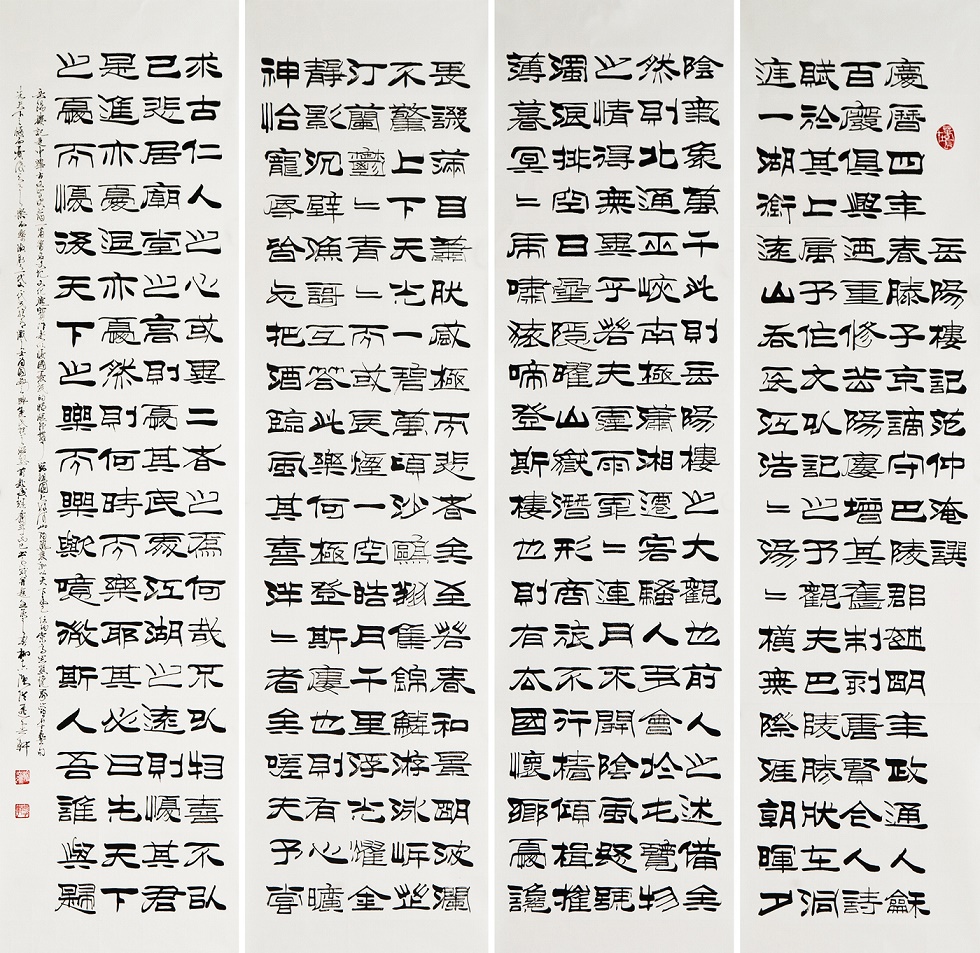 岳陽樓記范仲淹譔
慶曆四年春滕子京謫守巴陵郡越朙年政通人龢
百廢俱興迺重修岳陽廔增其舊制刻唐賢今人詩
賦於其上屬予作文以記之予觀夫巴陵勝狀在洞
庭一湖銜遠山吞長江浩〻湯〻橫無際涯朝暉夕
陰氣象萬千此則岳陽樓之大觀也前人之述備矣
然則北通巫峽南極瀟湘遷客騷人多會於此覽物
之情得無異乎若夫霪雨霏〻連月不開陰風怒號
濁浪排空日星隱曜山嶽潛形商旅不行檣傾楫摧
薄暮冥〻虎嘯猿啼登斯樓也則有去國懷鄉憂讒
畏譏滿目蕭肰感極而悲者矣至若春和景朙波瀾
不驚上下天光一碧萬頃沙鷗翔集錦鱗游泳岸芷
汀蘭鬱〻青〻而或長煙一空皓月千里浮光耀金
靜影沉璧漁謌互答此樂何極登斯廔也則有心曠
神怡寵辱皆忘把酒臨風其喜洋〻者矣嗟夫予嘗
求古仁人之心或異二者之為何哉不以物喜不以
己悲居廟堂之高則憂其民處江湖之遠則懮其君
是進亦憂退亦憂然則何時而樂耶其必曰先天下
之憂而懮後天下之樂而樂歟噫微斯人吾誰與歸